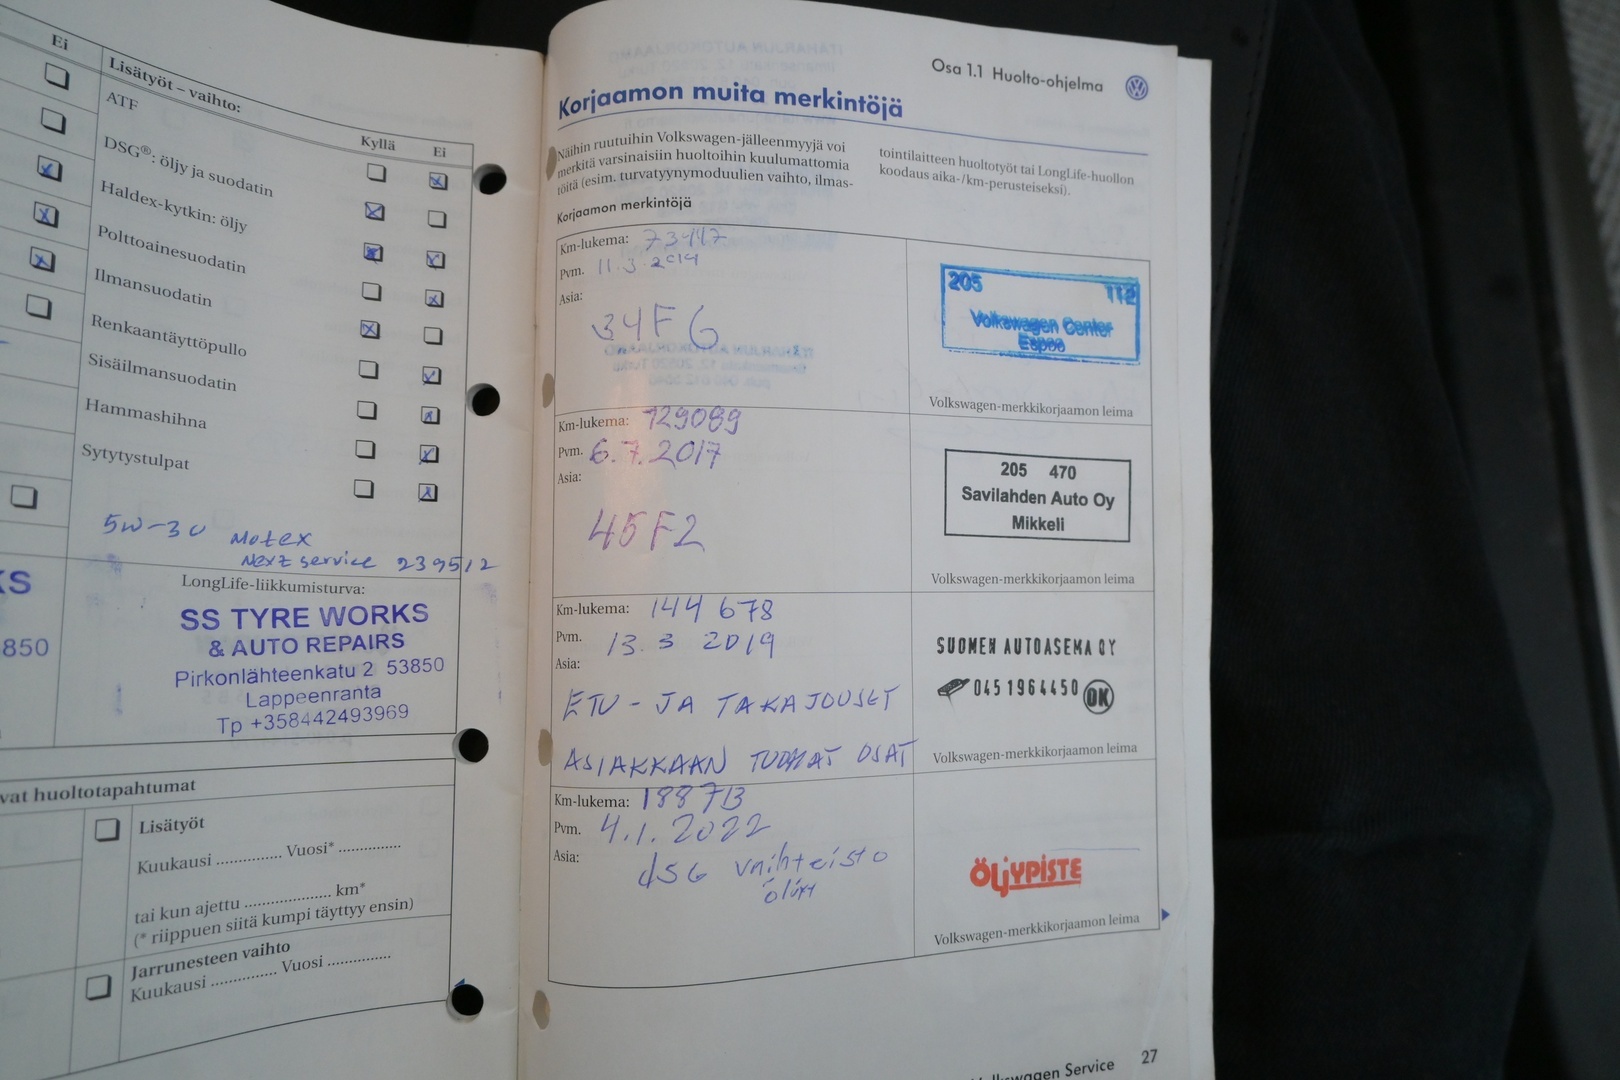 Ei
Lisätyöt – vaihto:
Kyllä Ei
ATF
DSG®: öljy ja suodatin
Haldex-kytkin: öljy
Polttoainesuodatin
Ilmansuodatin
Renkaantäyttöpullo
Sisäilmansuodatin
Hammashihna
Sytytystulpat
5W-30 Motex
Next service 239512
KS
850
LongLife-liikkumisturva:
SS TYRE WORKS
& AUTO REPAIRS
Pirkonlähteenkatu 2 53850
Lappeenranta
Tp +358442493969
vat huoltotapahtumat
Lisätyöt
Kuukausi .............. Vuosi* ..............
tai kun ajettu .................... km*
(* riippuen siitä kumpi täyttyy ensin)
Jarrunesteen vaihto
Kuukausi .............. Vuosi ..............
Osa 1.1 Huolto-ohjelma
Korjaamon muita merkintöjä
Näihin ruutuihin Volkswagen-jälleenmyyjä voi
merkitä varsinaisiin huoltoihin kuulumattomia
töitä (esim. turvatyynymoduulien vaihto, ilmas-
tointilaitteen huoltotyöt tai LongLife-huollon
koodaus aika-/km-perusteiseksi).
Korjaamon merkintöjä
Km-lukema: 73447
Pvm. 11.3.2014
Asia:
34F6
205 112
Volkswagen Center
Espoo
Volkswagen-merkkikorjaamon leima
Km-lukema: 129089
Pvm. 6.7.2017
Asia:
45F2
205 470
Savilahden Auto Oy
Mikkeli
Volkswagen-merkkikorjaamon leima
Km-lukema: 144 678
Pvm. 13.3 2019
Asia:
ETU - JA TAKAJOUSET
ASIAKKAAN TUOMAT OSAT
SUOMEN AUTOASEMA OY
045 1964450 OK
Volkswagen-merkkikorjaamon leima
Km-lukema: 188713
Pvm. 4.1.2022
Asia:
dSG vaihteisto
ÖLJYPISTE
Volkswagen-merkkikorjaamon leima
Volkswagen Service 27